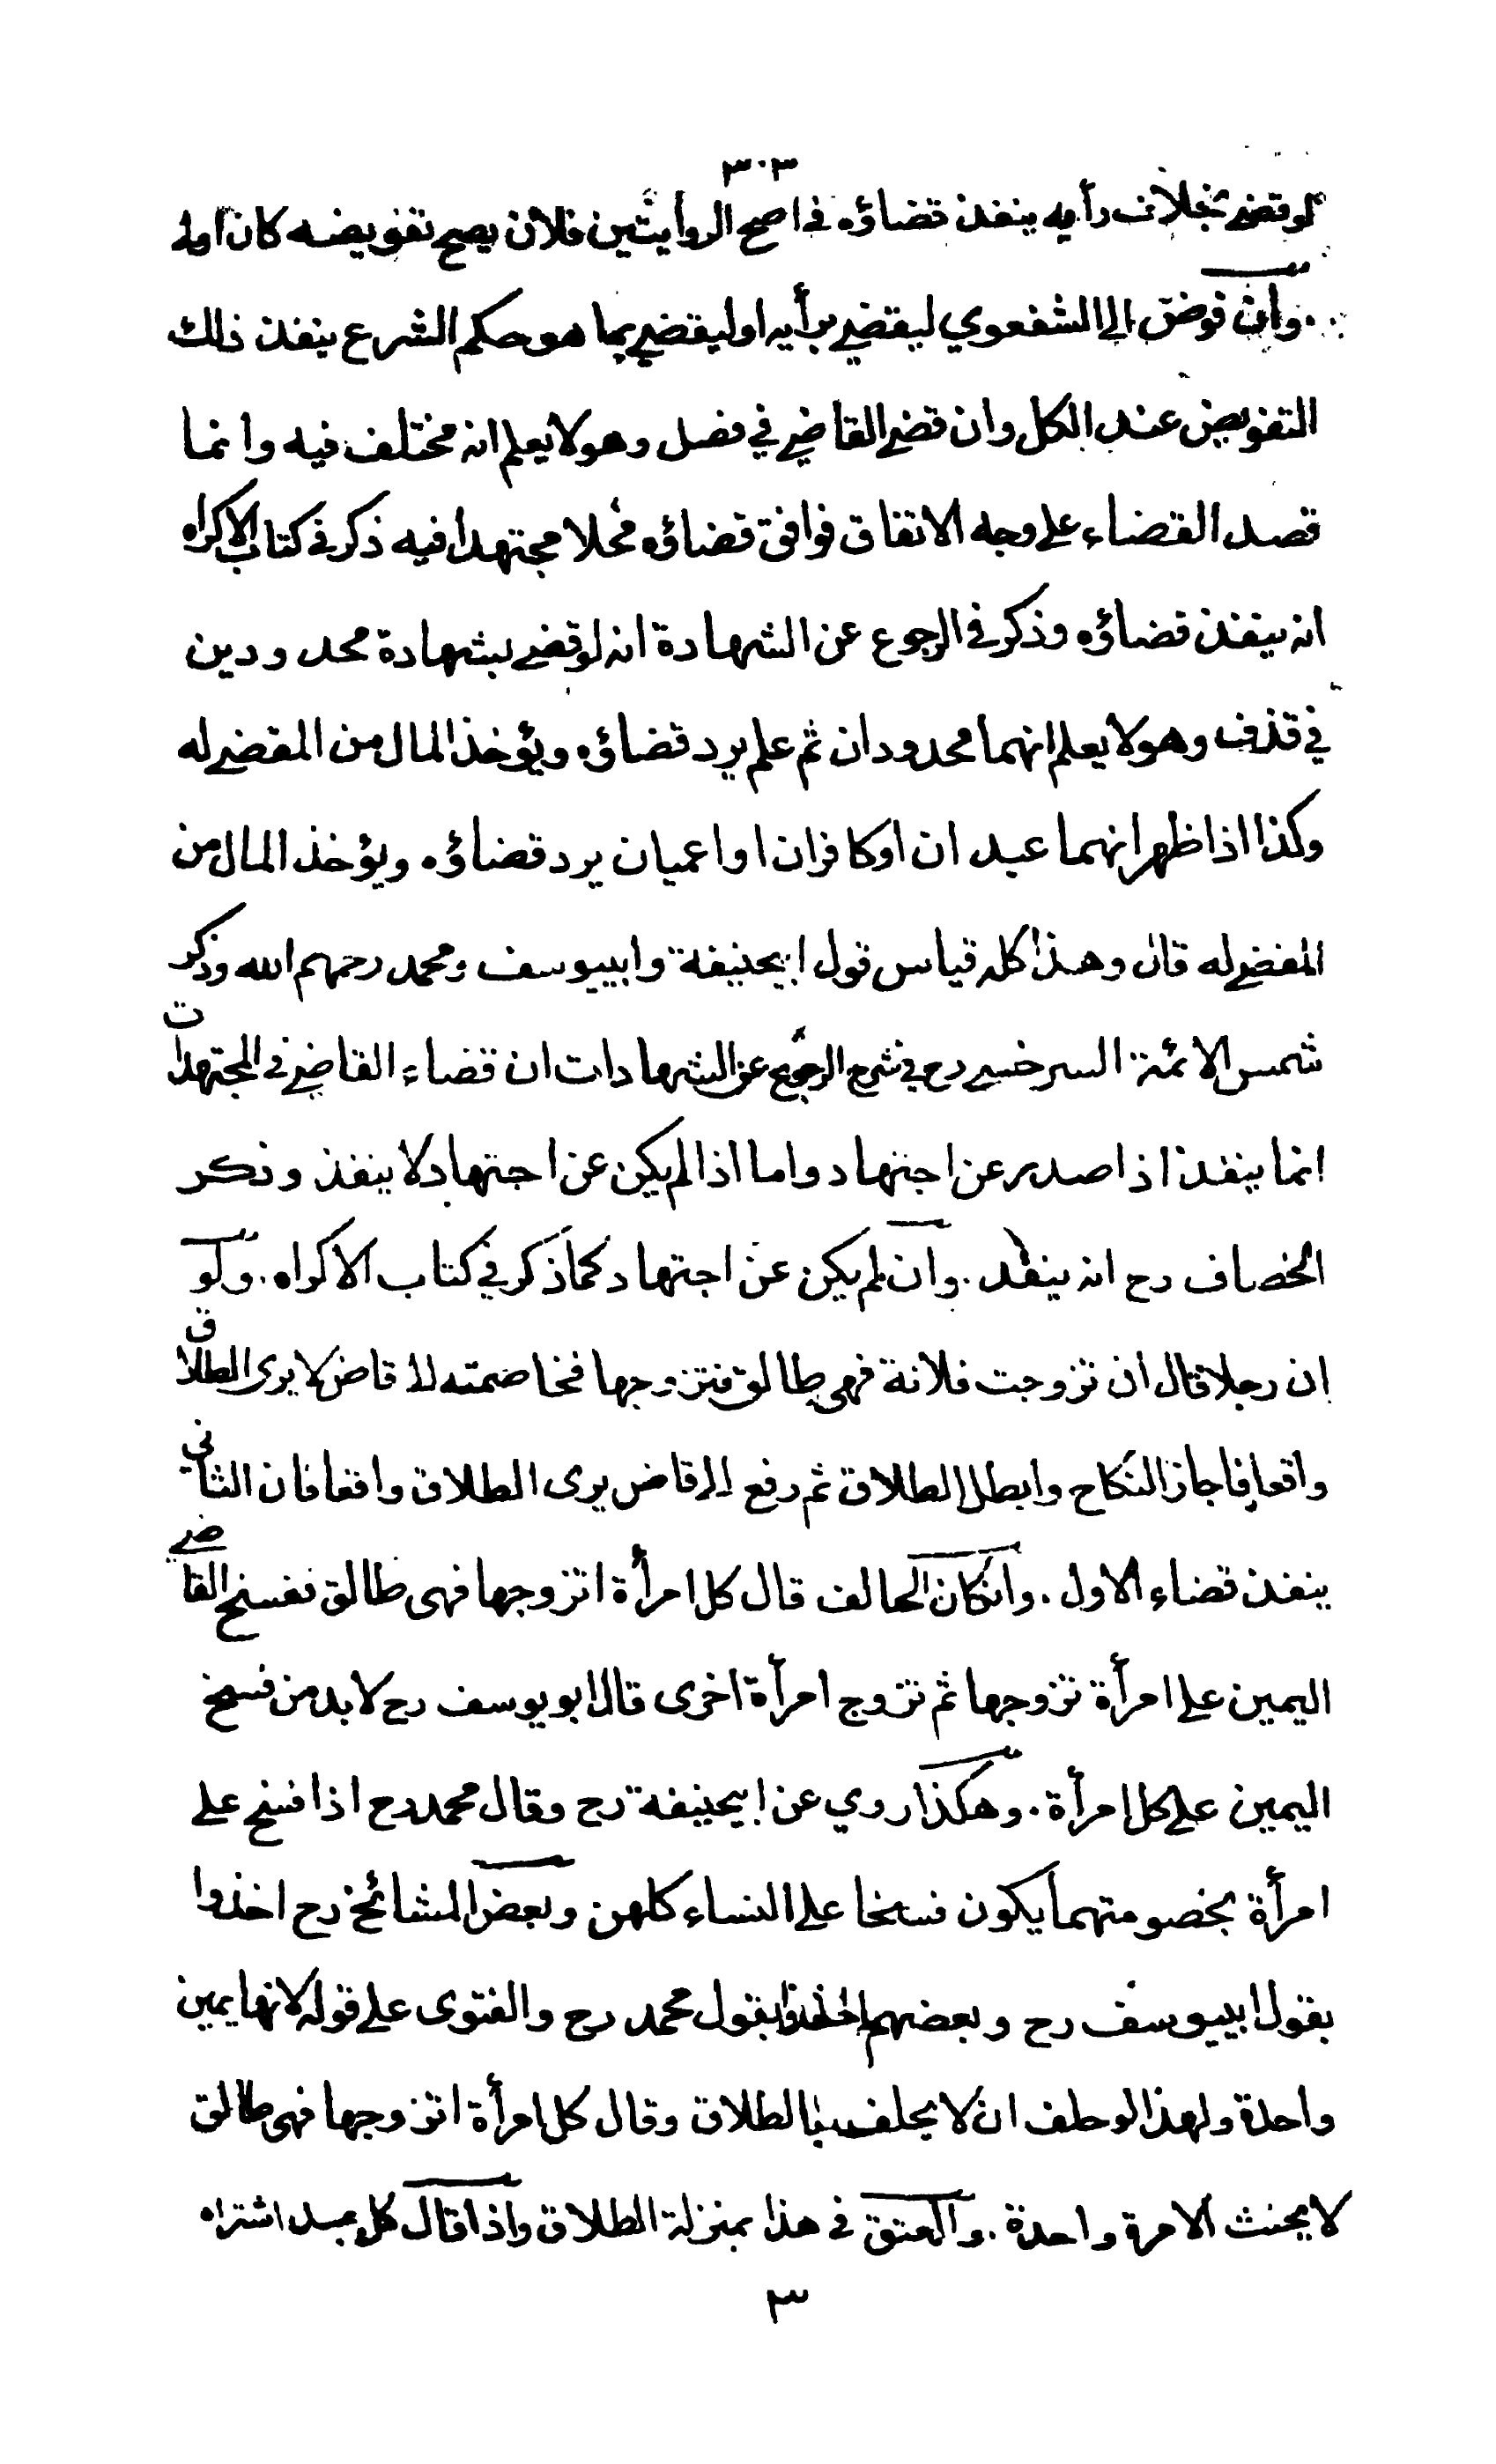 ٣٠٣
لو قضى بخلاف رأيه ينفذ قضاؤه في اصح الروايتين فلان يصح تفويضه كان اولى
وان فوض الى الشفعوي ليقضي برأيه او ليقضي بما هو حكم الشرع ينفذ ذلك
التفويض عند الكل وان قضى القاضي في فصل وهو لا يعلم انه مختلف فيه وانما
قصد القضاء على وجه الاتفاق فوافق قضاؤه محلا مجتهدا فيه ذكر في كتاب الاكراه
انه ينفذ قضاؤه وذكر في الرجوع عن الشهادة انه لو قضى بشهادة محدودين
في قذف وهو لا يعلم انهما محدودان ثم علم يرد قضاؤه ويؤخذ المال من المقضي له
وكذا اذا ظهر انهما عبدان او كافران او اعميان يرد قضاؤه ويؤخذ المال من
المقضي له قال وهذا كله قياس قول ابيحنيفة وابييوسف ومحمد رحمهم الله وذكر
شمس الائمة السرخسي رح في شرح الرجوع عن الشهادات ان قضاء القاضي في المجتهدات
انما ينفذ اذا صدر عن اجتهاد واما اذا لم يكن عن اجتهاد لا ينفذ وذكر
الخصاف رح انه ينفذ. وان لم يكن عن اجتهاد كما ذكر في كتاب الاكراه. ولو
ان رجلا قال ان تزوجت فلانة فهي طالق فتزوجها فخاصمته الى قاض لا يرى الطلاق
واقعا فاجاز النكاح وابطل الطلاق ثم رفع الى قاض يرى الطلاق واقعا فان الثاني
ينفذ قضاء الاول. وانكان الحالف قال كل امرأة اتزوجها فهي طالق ففسخ القاضي
اليمين على امرأة تزوجها ثم تزوج امرأة اخرى قال ابو يوسف رح لا بد من فسخ
اليمين على كل امرأة. وهكذا روي عن ابيحنيفة رح وقال محمد رح اذا فسخ على
امرأة بخصومتهما يكون فسخا على النساء كلهن وبعض المشائخ رح اخذوا
بقول ابييوسف رح وبعضهم اخذوا بقول محمد رح والفتوى على قوله لانها يمين
واحدة ولهذا لو حلف ان لا يحلف بالطلاق وقال كل امرأة اتزوجها فهي طالق
لا يحنث الا مرة واحدة. والعتق في هذا بمنزلة الطلاق واذا قال كل عبد اشتراه
٣